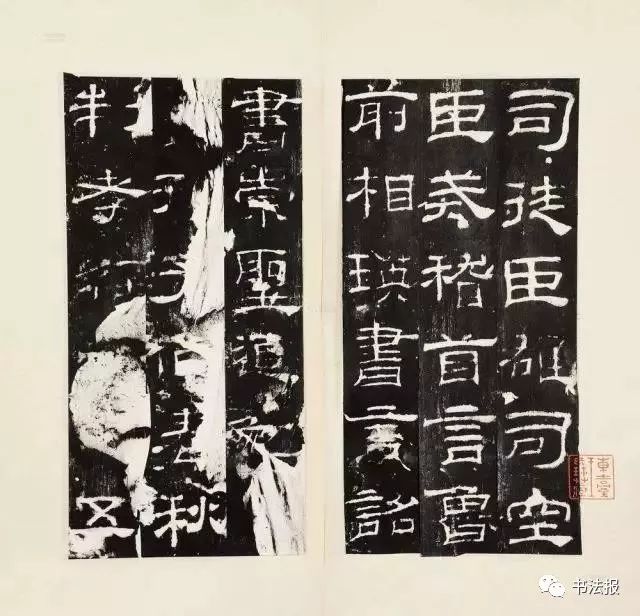 司徒臣雄司空
臣戒稽首言魯
前相瑛書言詔
書崇聖道勉
孔子作春秋
制孝經五
东臺
书法报